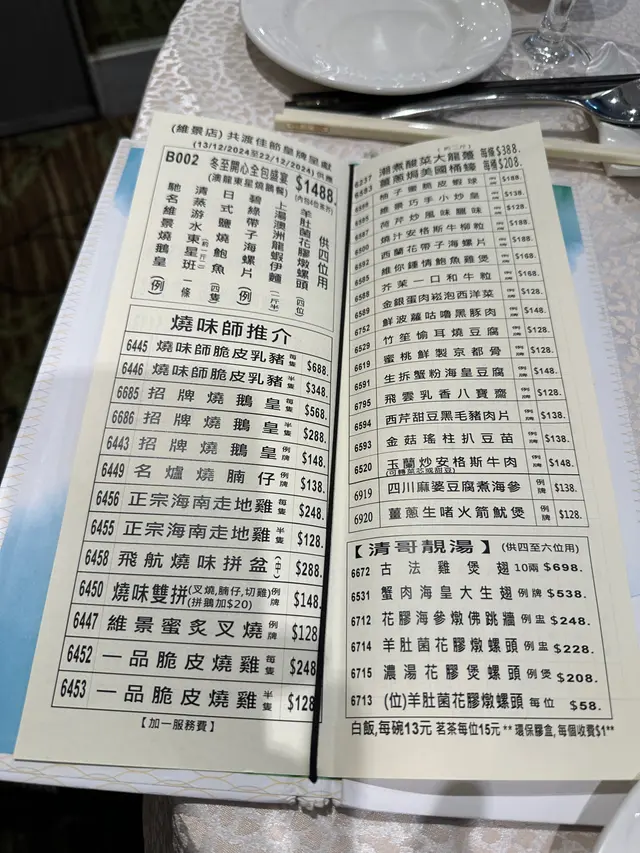 (維景店) 共渡佳節皇牌呈獻
(13/12/2024至22/12/2024)供應
B002 冬至開心全包盛宴 $1488.
(澳龍東星燒鵝餐) (內包4位茶芥)
供四位用
羊肚菌花膠燉螺頭 (四位)
上湯澳洲龍蝦伊麵 (一斤半)
碧綠帶子海螺片 (例)
日式鹽燒鮑魚 (四隻)
清蒸游水東星班 (約一斤) 一條
馳名維景燒鵝皇 (例)
燒味師推介
6445 燒味師脆皮乳豬 每隻 $688.
6446 燒味師脆皮乳豬 半隻 $348.
6685 招牌燒鵝皇 每隻 $568.
6686 招牌燒鵝皇 半隻 $288.
6443 招牌燒鵝皇 例牌 $148.
6449 名爐燒腩仔 例牌 $138.
6456 正宗海南走地雞 每隻 $248.
6455 正宗海南走地雞 半隻 $128.
6458 飛航燒味拼盆 (中) $288.
6450 燒味雙拼 (叉燒,腩仔,切雞) (拼鵝加$20) 例牌 $148
6447 維景蜜炙叉燒 例牌 $128
6452 一品脆皮燒雞 每隻 $248
6453 一品脆皮燒雞 半隻 $128
【加一服務費】
6237 潮煮酸菜大龍躉 每條 $388.
6383 薑蔥焗美國桶蠔 每桶 $208.
柚子蜜脆皮蝦球 $188.
維景巧手小炒皇 $138.
荷芹炒風味臘味 $128.
6597 燒汁安格斯牛柳粒 $188.
6800 西蘭花帶子海螺片 $168.
維你鍾情鮑魚雞煲 $188.
6585 芥茉一口和牛粒 $168.
6589 金銀蛋肉崧泡西洋菜 例牌 $128.
6752 鮮波蘿咕嚕黑豚肉 例牌 $148.
6529 竹笙愉耳燒豆腐 例牌 $128.
6619 蜜桃鮮製京都骨 例牌 $128.
6591 生拆蟹粉海皇豆腐 例牌 $148.
6795 飛雲乳香八寶齋 例牌 $128.
6594 西芹甜豆黑毛豬肉片 例牌 $138.
6593 金菇瑤柱扒豆苗 例牌 $138.
6520 玉蘭炒安格斯牛肉 例牌 $148.
6919 四川麻婆豆腐煮海參 例牌 $138.
6920 薑蔥生啫火箭魷煲 例牌 $128.
【清哥靚湯】 (供四至六位用)
6672 古法雞煲翅 10兩 $698.
6531 蟹肉海皇大生翅 例牌 $538.
6712 花膠海參燉佛跳牆 例盅 $248.
6714 羊肚菌花膠燉螺頭 例盅 $228.
6715 濃湯花膠煲螺頭 例煲 $208.
6713 (位)羊肚菌花膠燉螺頭 每位 $58.
白飯,每碗13元 茗茶每位15元 ** 環保膠盒,每個收費$1**